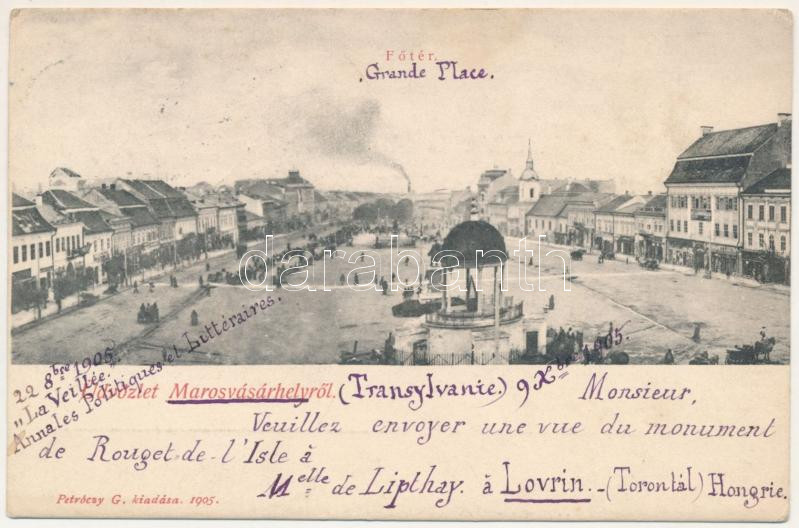 Főtér.
Grande Place.
darabanth
22 8bre 1905.
"La Veillée."
Annales Politiques et Littéraires.
Üdvözlet Marosvásárhelyről. (Transylvanie.) 9 Xbre 1905.
Monsieur,
Veuillez envoyer une vue du monument
de Rouget-de-l'Isle à
Melle de Lipthay. à Lovrin. - (Torontál) Hongrie.
Petróczy G. kiadása. 1905.